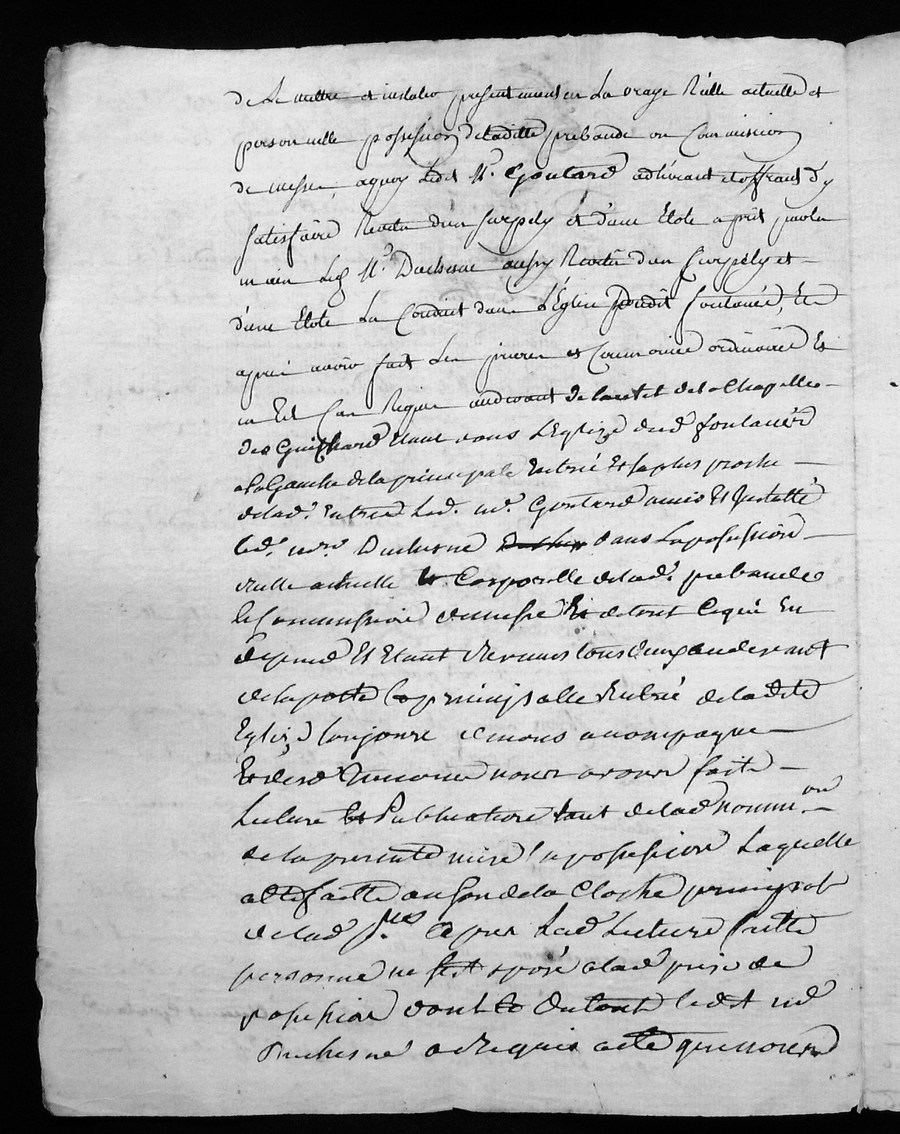 de le mettre et installer presentement en La vraye Réelle actuelle et
personnelle possession de laditte prebande ou Commission
de messe, a quoy Ledit Mr. Goutard adhérant et offrant d'y
satisfaire Revetu d'un surpely et d'une Etole a prit par la
main Led Mr. Duchesne aussy Revetu d'un surpely et
d'une Etole La Conduit dans L'Eglise dudit foulanée, Et
après avoir fait Les prieres et Ceremonies ordinaires Et
au devant de l'autel de la Chapelle
des Guichard Etant sous L'Eglize dud foulanér
a la Gauche de la principale Entrée Et la plus proche
de lad. Entrée Led. mr. Goutard a mis Et Installé
led. mre. Duchesne dans La possession
réelle actuelle Et Corporelle de lad. prebande
Et Commission de messe Et de tout Ce qui En
depend Et Etant Revenus tous deux au devant
de la porte La principalle Entrée de la dite
Eglize toujours de nous accompagné
Et desd Temoins nous avons fait
Lecture Et Publication tant de lad nommon
de la presente mise En possession Laquelle
a été faitte au son de la Cloche principale
de lad Apres Lad Lecture faitte
personne ne s'est oposé a lad prise de
possession dont Et Du tout ledit mr
Duchesne a Requis acte que nous